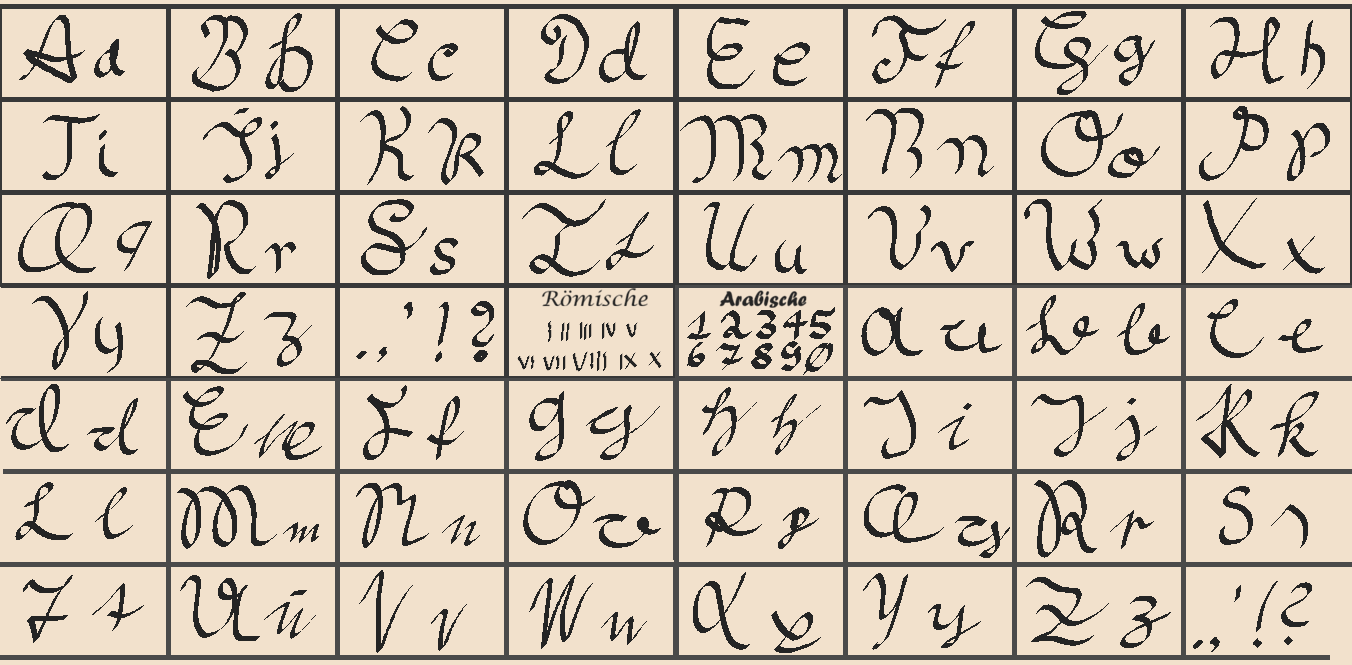 Aa Bb Cc Dd Ee Ff Gg Hh
Ii Jj Kk Ll Mm Nn Oo Pp
Qq Rr Ss Tt Uu Vv Ww Xx
Yy Zz .,'!? Römische I II III IV V VI VII VIII IX X Arabische 1 2 3 4 5 6 7 8 9 0 Aa Bb Cc
Dd Ee Ff Gg Hh Ii Jj Kk
Ll Mm Nn Oo Pp Qq Rr Ss
Tt Uu Vv Ww Xx Yy Zz .,'!?